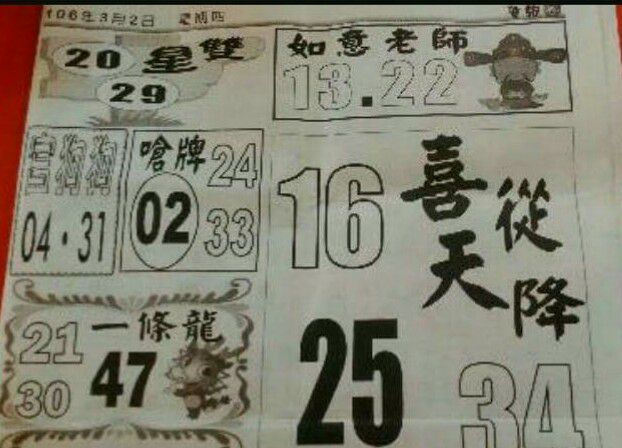 106年3月2日 星期四
雙星
20
29
如意老師
13.22
04.31
嗆牌
02
24
33
喜從天降
16
25
34
一條龍
21
30
47